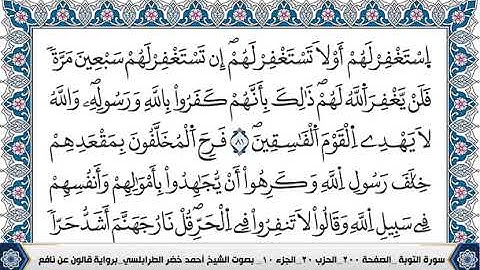 اِسْتَغْفِرْ لَهُمْ أَوْ لَا تَسْتَغْفِرْ لَهُمْ إِن تَسْتَغْفِرْ لَهُمْ سَبْعِينَ مَرَّةً
فَلَنْ يَّغْفِرَ اَللَّهُ لَهُمْ ذَٰلِكَ بِأَنَّهُمْ كَفَرُواْ بِاللَّهِ وَرَسُولِهِ وَاللَّهُ
لَا يَهْدِے اِلْقَوْمَ اَلْفَٰسِقِينَ ٨١ فَرِحَ اَلْمُخَلَّفُونَ بِمَقْعَدِهِمْ
خِلَٰفَ رَسُولِ اِللَّهِ وَكَرِهُواْ أَنْ يُّجَٰهِدُواْ بِأَمْوَٰلِهِمْ وَأَنفُسِهِمْ
فِے سَبِيلِ اِللَّهِ وَقَالُواْ لَا تَنفِرُواْ فِے اِلْحَرِّ قُلْ نَارُ جَهَنَّمَ أَشَدُّ حَرّاً
سورة التوبة_ الصفحة ٢٠٠_ الحزب ٢٠_ الجزء ١٠_ بصوت الشيخ أحمد خضر الطرابلسي_ برواية قالون عن نافع